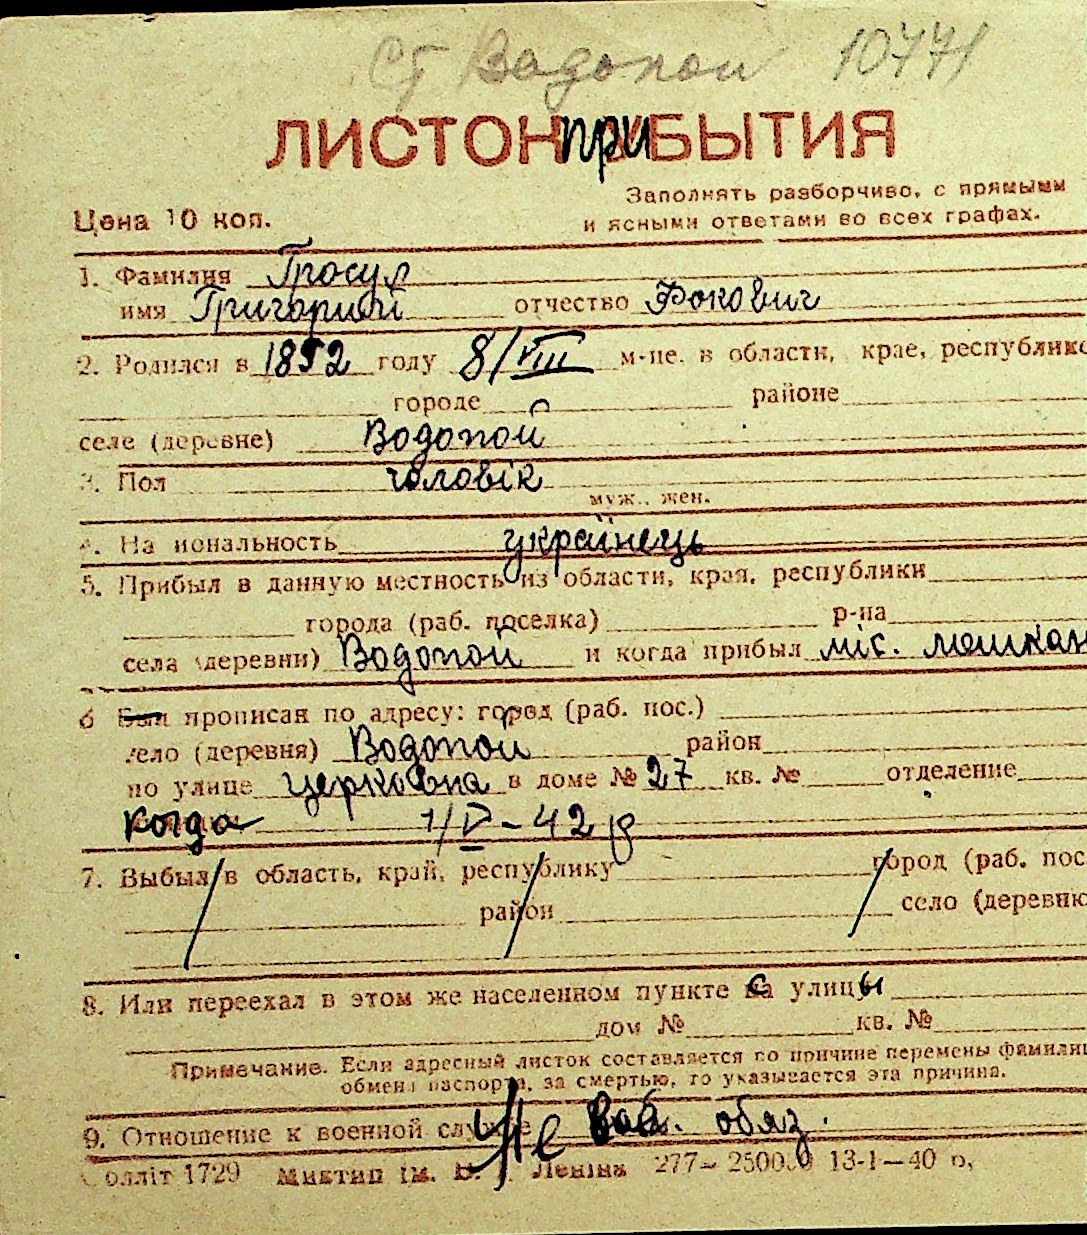 ст Водопой 10771
ЛИСТОК ПРИБЫТИЯ
Заполнять разборчиво, с прямыми
Цена 10 коп. и ясными ответами во всех графах.
1. Фамилия Гросул
имя Григорий отчество Фокович
2. Родился в 1892 году 8/VIII м-це, в области, крае, республике
городе районе
селе (деревне) Водопой
3. Пол чоловік
муж., жен.
4. Национальность українець
5. Прибыл в данную местность из области, края, республики
города (раб. поселка) р-на
села (деревни) Водопой и когда прибыл міс. мешкан
6 Был прописан по адресу: город (раб. пос.)
село (деревня) Водопой район
по улице церковна в доме № 27 кв. № отделение
когда 1/V-42 р
7. Выбыл в область, край, республику город (раб. пос
район село (деревню
8. Или переехал в этом же населенном пункте с улицы
дом № кв. №
Примечание. Если адресный листок составляется по причине перемены фамилии
обмена паспорта, за смертью, то указывается эта причина.
9. Отношение к военной службе Не воб. обяз.
олліт 1729 Миктип ім. В. Леніна 277– 250000 13-1–40 р,